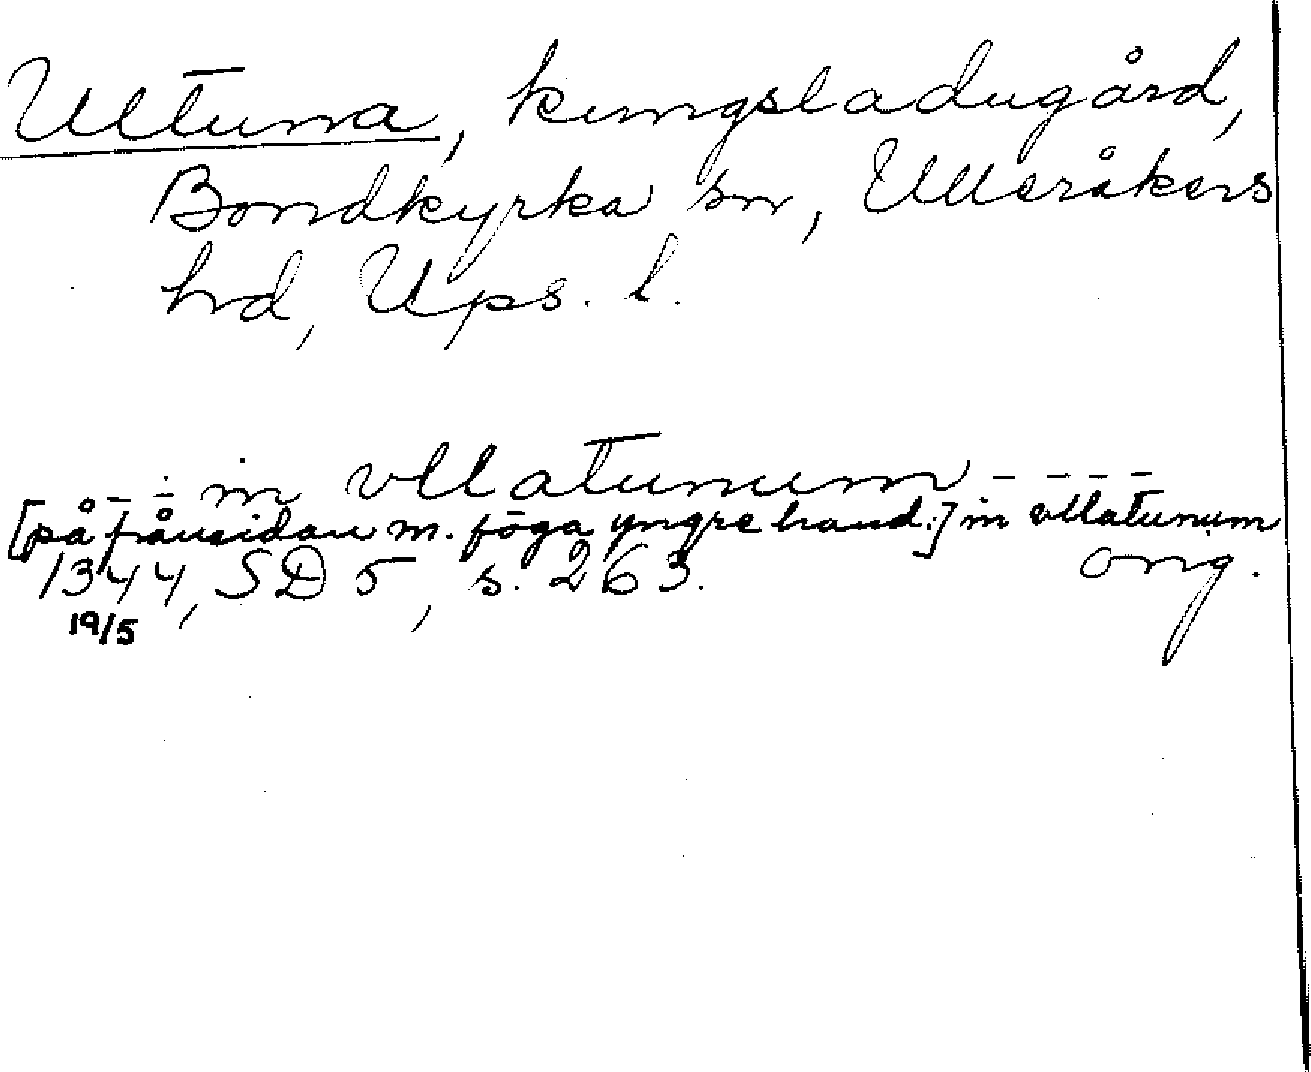 Ultuna, kungsladugård,
Bondkyrka sn, Ulleråkers
hd, Ups. l.
- - - in vllatunum - - - -
[på frånsidan m. föga yngre hand:] in vllatunum
1344, SD 5, s. 263. orig.
19/5